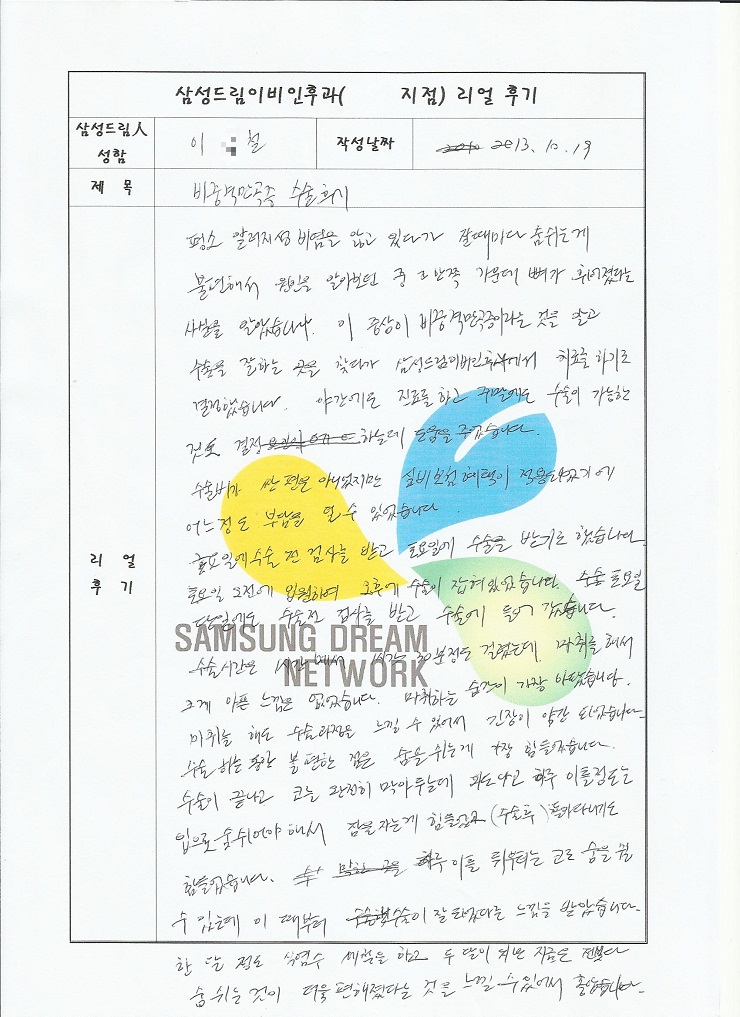 삼성드림이비인후과(          지점) 리얼 후기
삼성드림人
성함
이    철
작성날짜
2013. 10. 19
제 목
비중격만곡증 수술후기
리 얼
후 기
평소 알러지성 비염을 앓고 있다가 잘때마다 숨쉬는게
불편해서 원인을 알아보던 중 코 안쪽 가운데 뼈가 휘어졌다는
사실을 알았습니다. 이 증상이 비중격만곡증이라는 것을 알고
수술을 잘하는 곳을 찾다가 삼성드림이비인후과에서 치료를 하기로
결정했습니다. 야간에도 진료를 하고 주말에도 수술이 가능한
것도 결정하는데 도움을 주었습니다.
수술비가 싼 편은 아니었지만 실비보험 혜택이 적용되었기에
어느정도 부담을 덜 수 있었습니다
금요일에 수술 전 검사를 받고 토요일에 수술을 받기로 했습니다.
토요일 오전에 입원하여 오후에 수술이 잡혀있었습니다. 수술 토요일
당일에도 수술전 검사를 받고 수술에 들어 갔습니다.
SAMSUNG DREAM
NETWORK
수술시간은 1시간에서 1시간 30분정도 걸렸는데 마취를 해서
크게 아픈 느낌은 없었습니다. 마취하는 순간이 가장 아팠습니다.
마취를 해도 수술과정은 느낄 수 있어서 긴장이 약간 되었습니다.
수술 하는 동안 불편한 점은 숨을 쉬는게 가장 힘들었습니다.
수술이 끝나고 코를 완전히 막아두는데 하루 이틀정도는
입으로 숨쉬어야 해서 잠을 자는게 힘들었고 (수술후) 돌아다니기도
힘들었습니다. 하루 이틀 뒤부터는 코로 숨을 쉴
수 있는데 이 때부터 수술이 잘 되었다는 느낌을 받았습니다.
한 달 정도 식염수 세척을 하고 두 달이 되어 지금은 전보다
숨 쉬는 것이 더욱 편해졌다는 것을 느낄 수 있어서 좋았습니다.